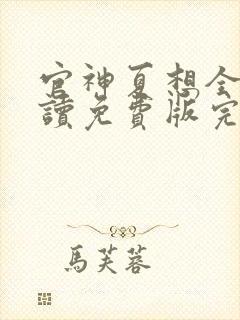 官神夏想全
讀免費版完
馬芙蓉